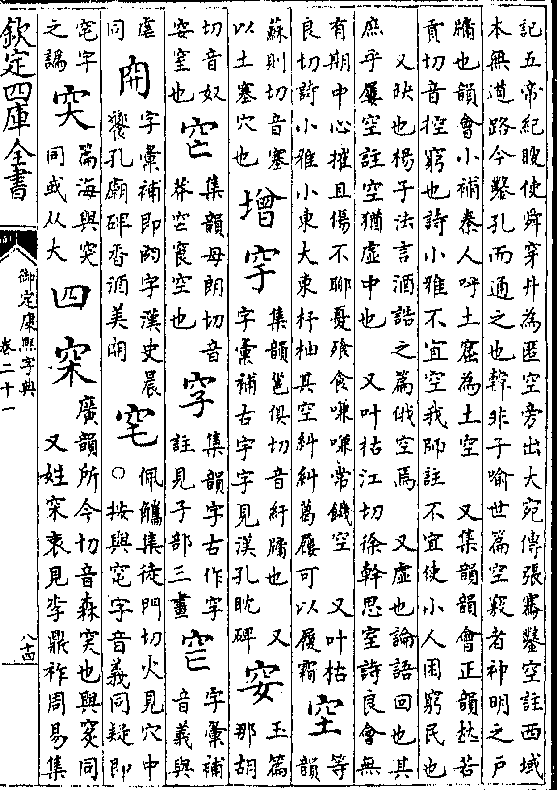 記五帝紀瞍使舜穿井為匿空旁出大宛傳張騫鑿空註西域
本無道路今鑿孔而通之也韓非子喻世篇空竅者神明之戸
牖也韻會小補秦人呼土窟為土空 又集韻韻會正韻𠀤苦
貢切音控窮也詩小雅不宜空我師註不宜使小人困窮民也
又缺也楊子法言酒誥之篇俄空焉 又虛也論語回也其
庶乎屢空註空猶虛中也 又叶枯江切徐幹思室詩良會無
有期中心摧且傷不聊憂飱食嗛嗛常饑空 又叶枯
良切詩小雅小東大東杼柚其空糾糾葛屨可以履霜 空 等韻
蘇則切音塞
以土塞穴也 增 穻 集韻邕俱切音紆牖也 又玉篇
字彙補古宇字見漢孔眈碑 䆊 那胡
切音奴
䆊窒也 𥤱 集韻母朗切音
莽空㝗空也 穸 集韻字古作穸
註見子部三畫 𥤰 字彙補
音義與
虛同 𥤲 字彙補即的字漢史晨
饗孔廟碑香酒美𥤲 𥤯 佩觿集徒門切火見穴中
○按與窀字音義同疑即
窀字之譌 突 篇海與突
同或从大 四 穼 廣韻所今切音森穾也與䆲同
又姓穼衷見李鼎祚周易集
欽定四庫全書
御定康熙字典
卷二十一
八十四